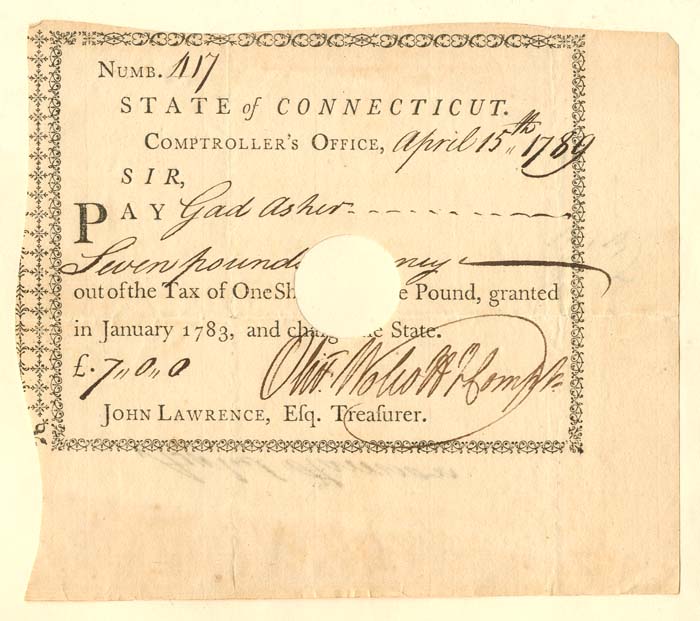 NUMB. 417
STATE of CONNECTICUT.
COMPTROLLER'S OFFICE, April 15th 1789
SIR,
PAY Gad Asher
Seven pounds ney
out of the Tax of One Sh e Pound, granted
in January 1783, and cha the State.
£. 7,,0,,0
Olivr. Wolcott Jr Compt
JOHN LAWRENCE, Eſq. Treaſurer.